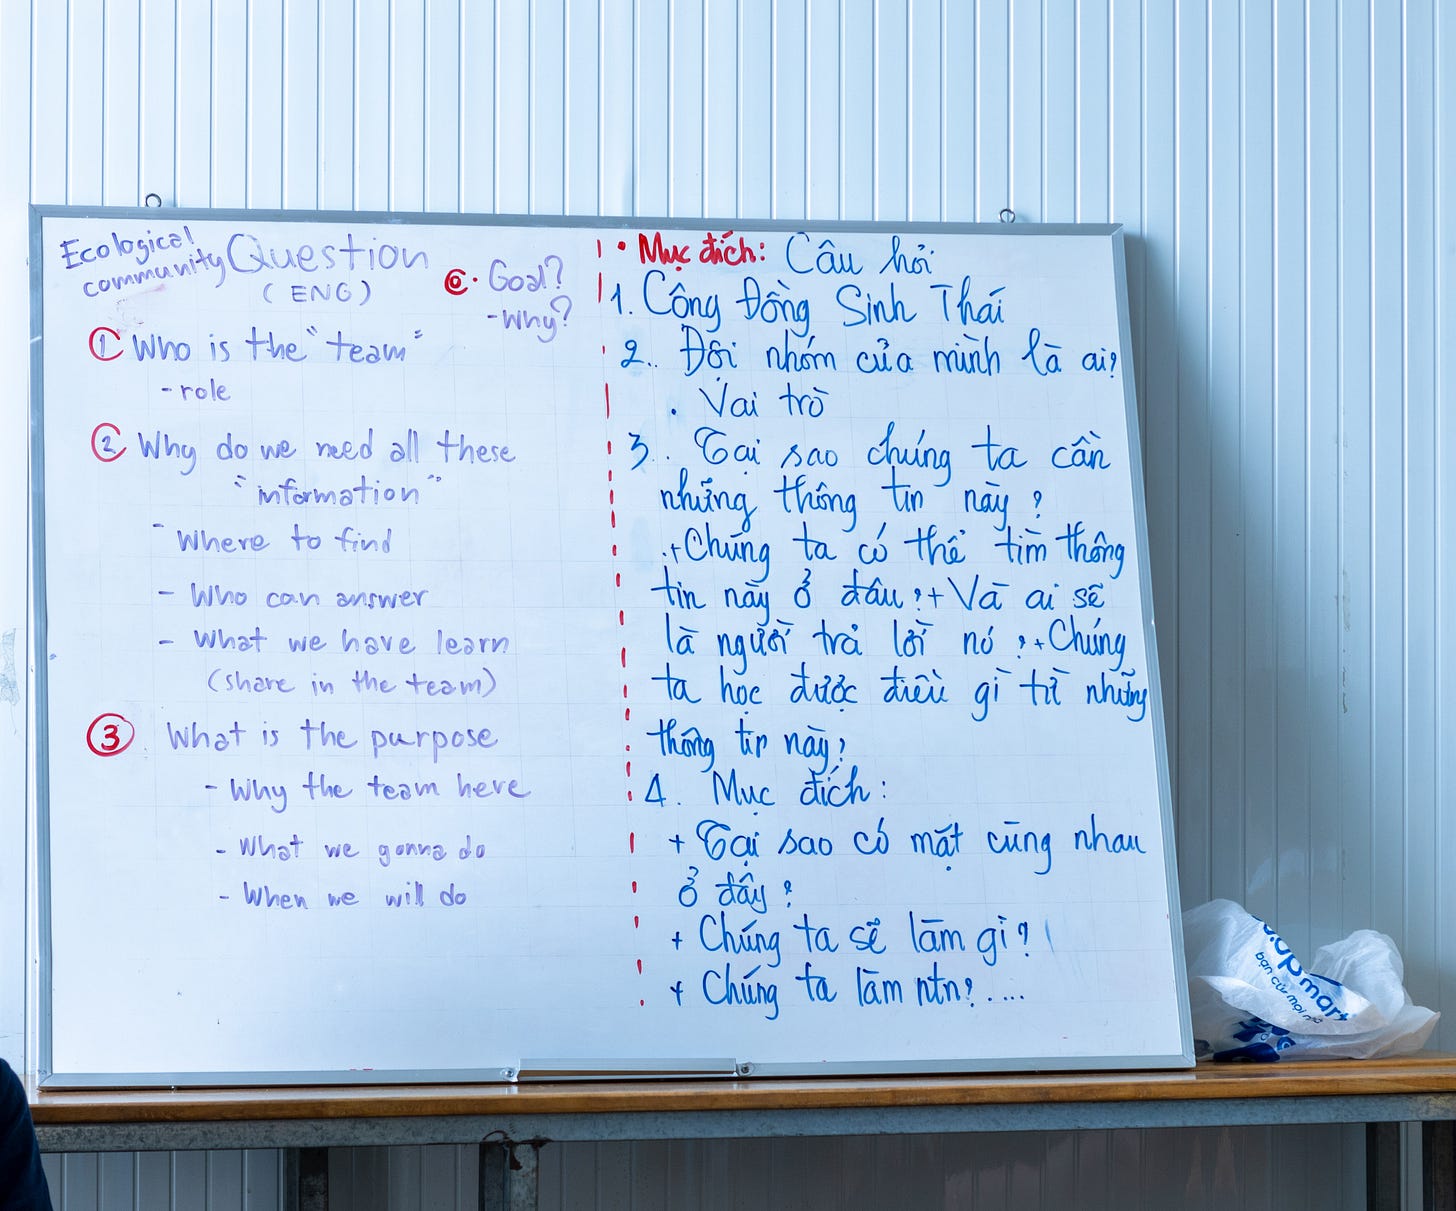 Ecological
community Question
(ENG)
0. Goal?
- Why?
1 Who is the "team"
- role
2 Why do we need all these
"information"
- Where to find
- Who can answer
- What we have learn
(share in the team)
3 What is the purpose
- Why the team here
- What we gonna do
- When we will do
• Mục đích: Câu hỏi
1. Công Đồng Sinh Thái
2.. Đội nhóm của mình là ai?
. Vai trò
3.. Tại sao chúng ta cần
những thông tin này?
.+ Chúng ta có thể tìm thông
tin này ở đâu? + Và ai sẽ
là người trả lời nó? + Chúng
ta học được điều gì từ những
thông tin này?
4. Mục đích:
+ Tại sao có mặt cùng nhau
ở đây?
+ Chúng ta sẽ làm gì?
+ Chúng ta làm ntn?....
mart
bạn của mọi nhà